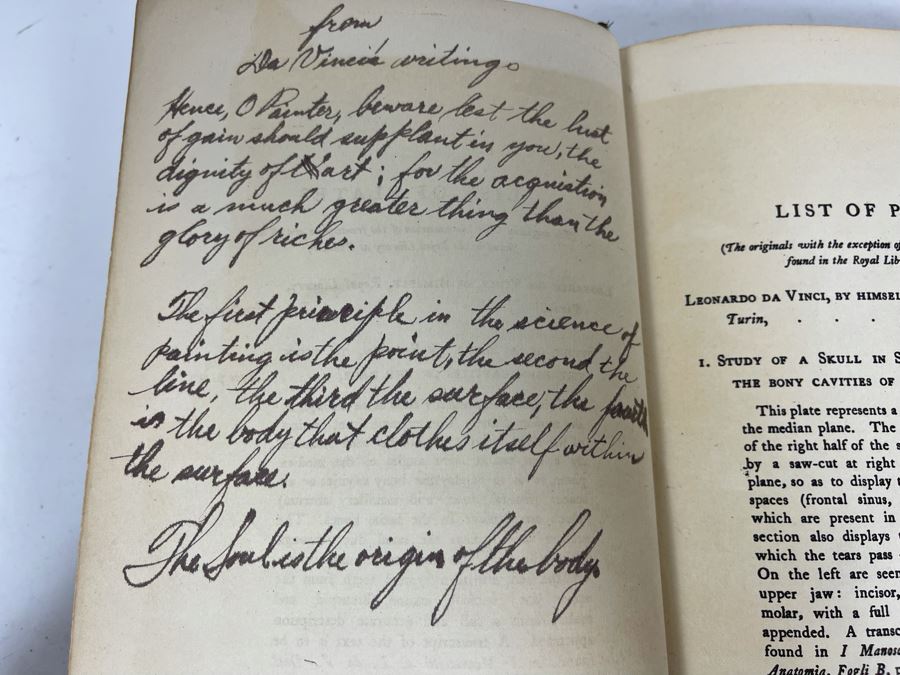 from
Da Vinci's writings
Hence, O Painter, beware lest the lust
of gain should supplant in you, the
dignity of art; for the acquistion
is a much greater thing than the
glory of riches.
The first principle in the science of
painting is the point, the second the
line, the third the surface, the fourth
is the body that clothes itself within
the surface.
The Soul is the origin of the body
LIST OF P
(The originals with the exception of
found in the Royal Lib
LEONARDO DA VINCI, BY HIMSEL
Turin, . . .
1. STUDY OF A SKULL IN S
THE BONY CAVITIES OF
This plate represents a
the median plane. The
of the right half of the s
by a saw-cut at right
plane, so as to display t
spaces (frontal sinus,
which are present in
section also displays
which the tears pass
On the left are seen
upper jaw: incisor,
molar, with a full
appended. A transc
found in I Manosc
Anatomia, Fogli B,